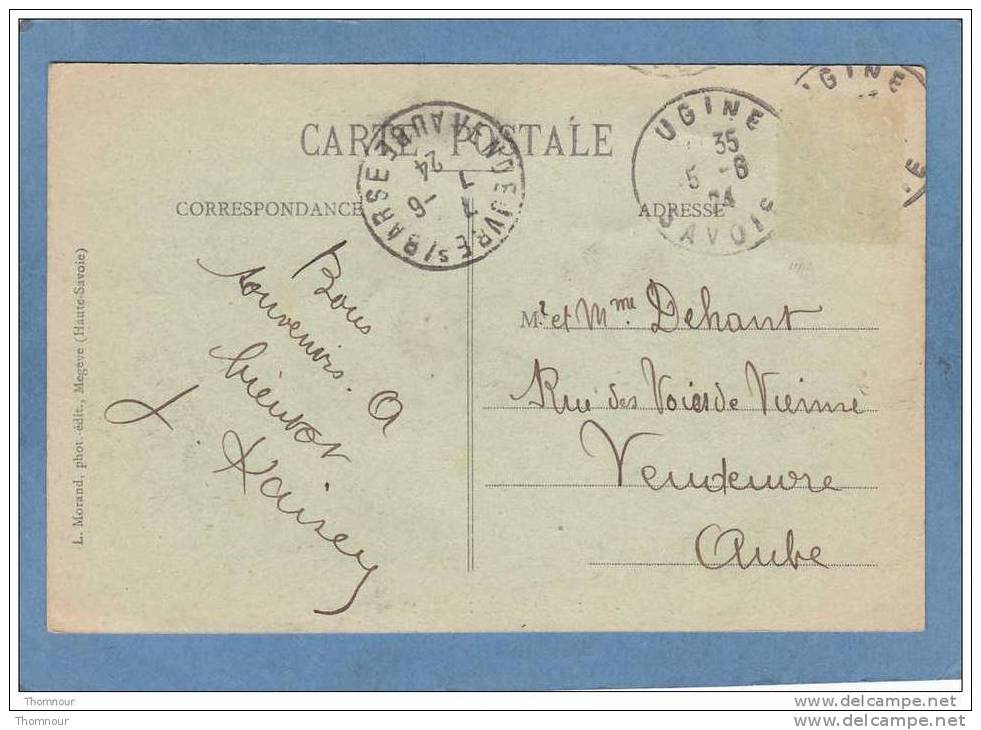 CARTE POSTALE
CORRESPONDANCE
ADRESSE
UGINE
35
5 -6
24
SAVOIE
VENDEUVRE S/ BARSE AUBE
7 -6
24
Bons
souvenirs. A
bientôt
J.
Mr et Mme Dehant
Rue des Voies de Vienne
Vendeuvre
Aube
L. Morand, phot.-édit., Megève (Haute-Savoie)
Thomnour
Thomnour
www.delcampe.net
www.delcampe.net